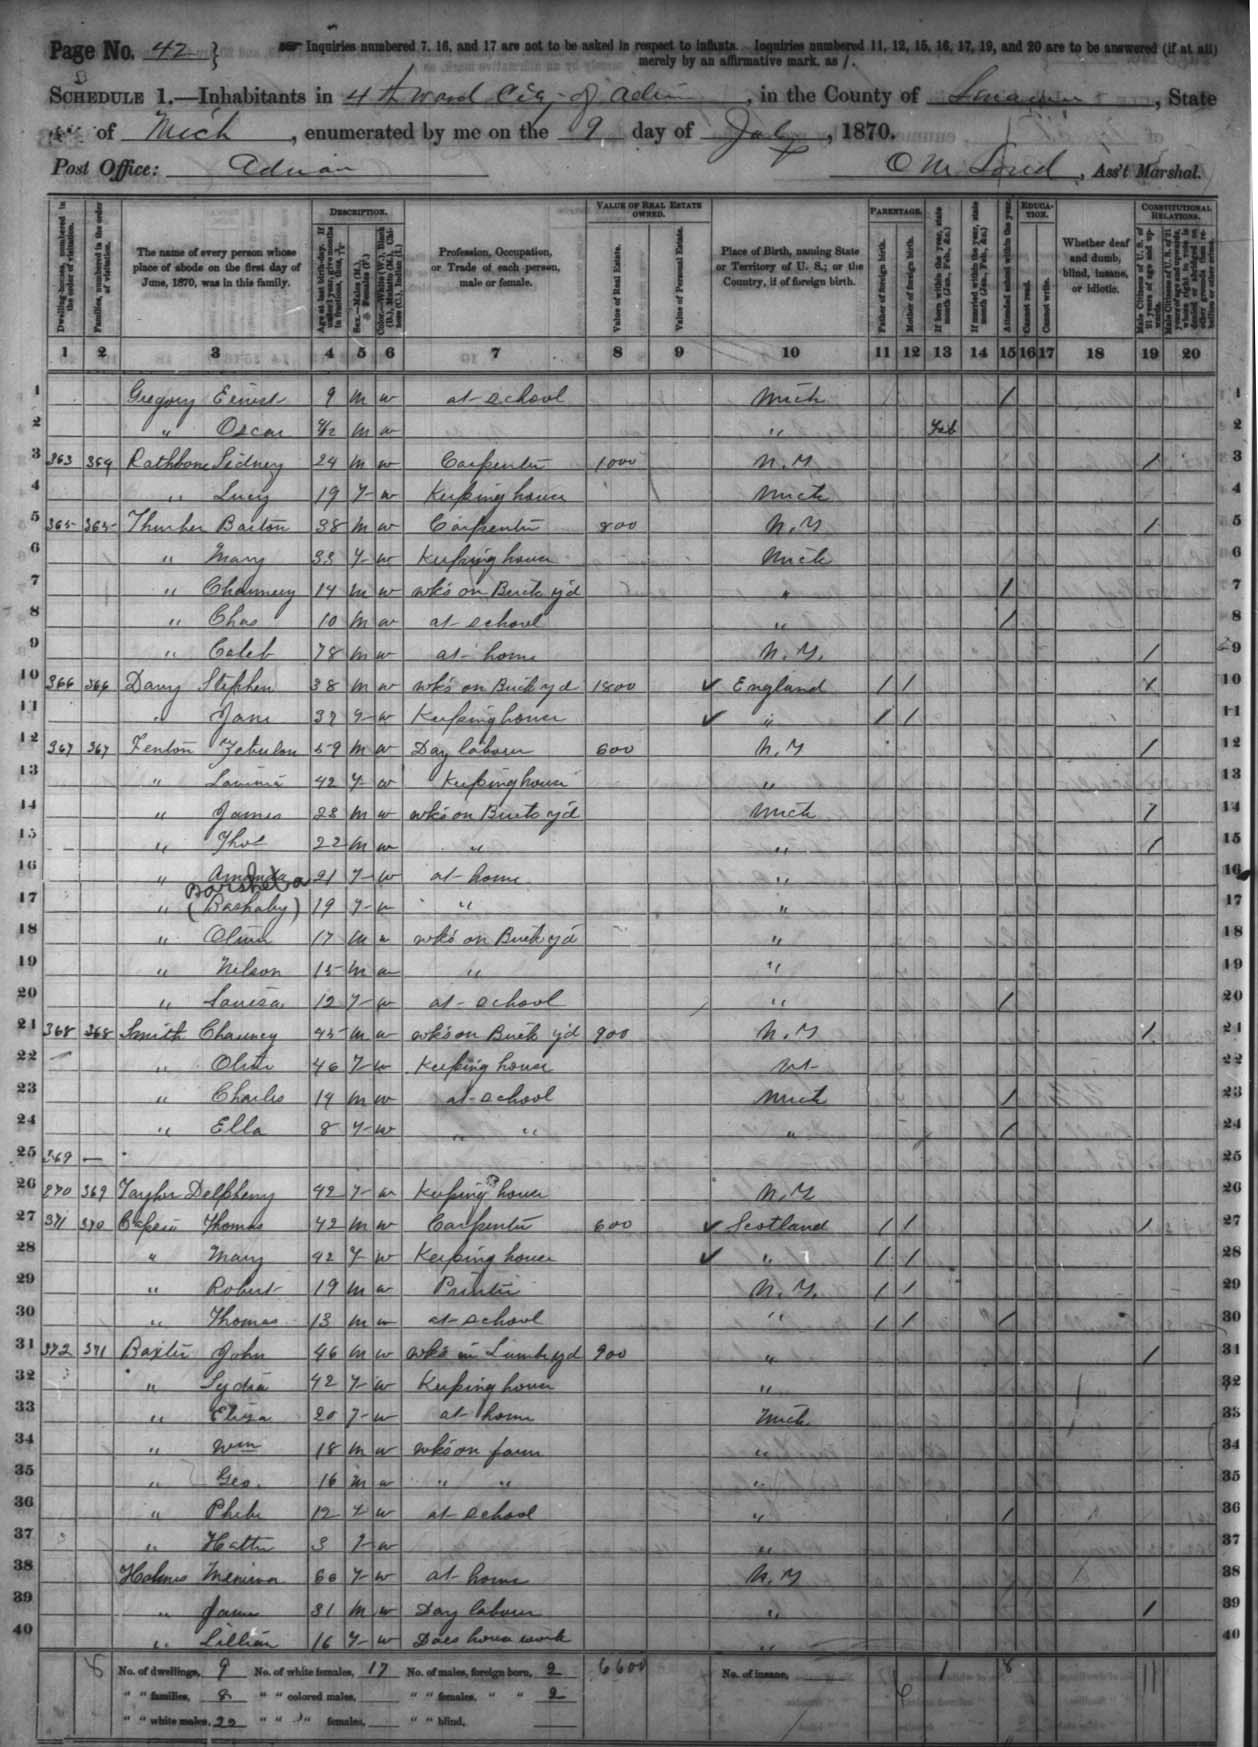 Page No. 42
Inquiries numbered 7, 16, and 17 are not to be asked in respect to infants. Inquiries numbered 11, 12, 15, 16, 17, 19, and 20 are to be answered (if at all) merely by an affirmative mark, as /.
SCHEDULE 1.—Inhabitants in 4th Ward City of Adrian, in the County of Lenawee, State
of Mich, enumerated by me on the 9 day of July, 1870.
Post Office: Adrian
Ass't Marshal.
Dwelling-houses, numbered in the order of visitation.
Families, numbered in the order of visitation.
The name of every person whose place of abode on the first day of June, 1870, was in this family.
DESCRIPTION.
Age at last birth-day. If under 1 year, give months in fractions, thus, 3/12
Sex.—Males (M.), Females (F.)
Color.—White (W.), Black (B.), Mulatto (M.), Chinese (C.), Indian (I.)
Profession, Occupation, or Trade of each person, male or female.
VALUE OF REAL ESTATE OWNED.
Value of Real Estate.
Value of Personal Estate.
Place of Birth, naming State or Territory of U. S.; or the Country, if of foreign birth.
PARENTAGE.
Father of foreign birth.
Mother of foreign birth.
If born within the year, state month (Jan., Feb., &c.)
If married within the year, state month (Jan., Feb., &c.)
Attended school within the year.
EDUCATION.
Cannot read.
Cannot write.
Whether deaf and dumb, blind, insane, or idiotic.
CONSTITUTIONAL RELATIONS.
Male Citizens of U. S. of 21 years of age and upwards.
1 2 3 4 5 6 7 8 9 10 11 12 13 14 15 16 17 18 19 20
1 Gregory Ernest 9 m w at school Mich / 1
2 " Oscar m w " Feb 2
3 363 Rathbone Sidney 24 m w Carpenter 1000 N.Y / 3
4 " Lucy 19 F w Keeping house Mich 4
5 365 365 Thurber Barton 38 m w Carpenter 800 N.Y / 5
6 " Mary 33 F w Keeping house Mich 6
7 " Chauncey 14 m w wks on Brick yd " / 7
8 " Chas 10 m w at school " / 8
9 " Caleb 78 m w at home N.Y. / 9
10 366 366 Davy Stephen 38 m w wks on Brick yd 1800 ✓ England / / / 10
11 " Jane F w Keeping house ✓ " / / 11
12 367 367 Fenton Zebulon 59 m w Day laborer 600 N.Y / 12
13 " Lavinia 42 F w Keeping house " 13
14 " James m w wks on Brick yd Mich / 14
15 " Thos 22 m w " " / 15
16 " Amanda 21 F w at home " 16
Barsheba
17 " (Bashaby) 19 F w " " 17
18 " Oliver 17 m w wks on Brick yd " 18
19 " Nelson 15 m w " " 19
20 " Louisa 12 F w at school " / 20
21 368 368 Smith Chauncy 45 m w wks on Brick yd 900 N.Y / 21
22 " Olive 46 F w Keeping house Vt 22
23 " Charles 14 m w at school Mich / 23
24 " Ella 8 F w " " " / 24
25 369 — 25
26 370 369 Taylor Delpheny 42 F w Keeping house N.Y 26
27 371 370 Thomas 42 m w Carpenter 600 ✓ Scotland / / / 27
28 " Mary 42 F w Keeping house ✓ " / / 28
29 " Robert 19 m w Printer N.Y. / / 29
30 " Thomas 13 m w at school " / / / 30
31 372 371 Baxter John 46 m w wks in Lumb yd 900 " / 31
32 " Lydia 42 F w Keeping house " 32
33 " Eliza 20 F w at home Mich 33
34 " Wm 18 m w wks on farm " 34
35 " Geo. 16 m w " " " 35
36 " Phebe 12 F w at school " / 36
37 " Hattie 3 F w " 37
38 Holmes Menirva 60 F w at home N.Y 38
39 " 31 m w Day laborer " / 39
40 " Lillian 16 F w Does house work " 40
No. of dwellings, 9 No. of white females, 17 No. of males, foreign born, 2 6600 No. of insane, 6 1 8 11
" " families, 8 " " colored males, " " females, " " 2
" " white males, 22 " " " females, " " blind,